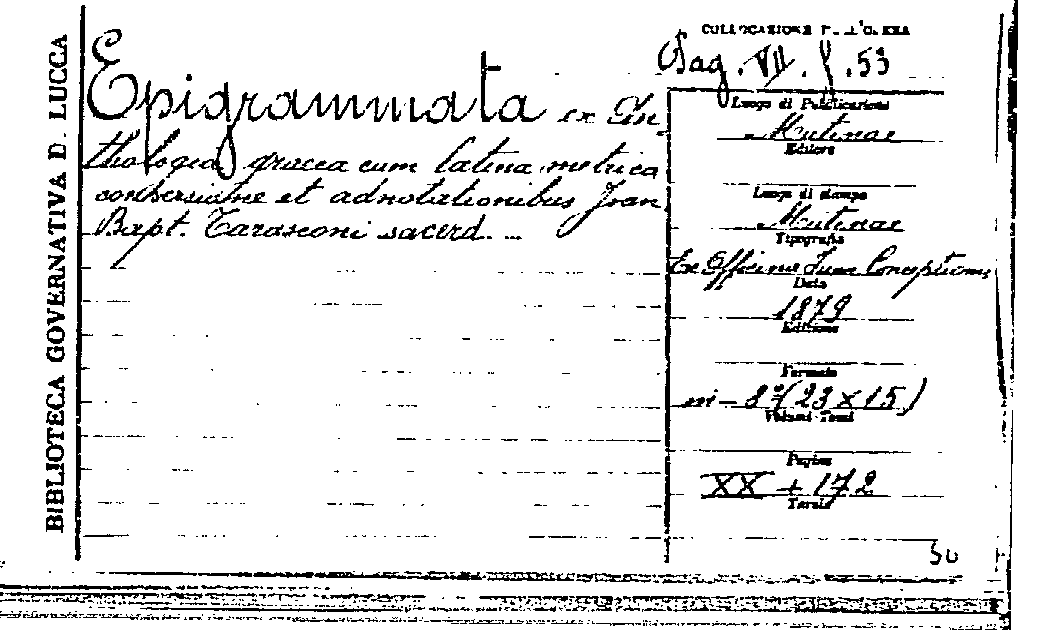 BIBLIOTECA GOVERNATIVA DI LUCCA
Epigrammata ex An-
thologia graeca cum latina metrica
conversione et adnotationibus Joan
Bapt. Tarasconi sacerd.
COLLOCAZIONE DELL'OPERA
Bag. VII. f. 53
Luogo di Pubblicazione
Mutinae
Editore
Luogo di stampa
Mutinae
Tipografia
Ex Officina Imm Conceptionis
Data
1879
Edizione
Formato
in-8º (23 x 15)
Volumi-Tomi
Pagine
XX + 172
Tavole
50